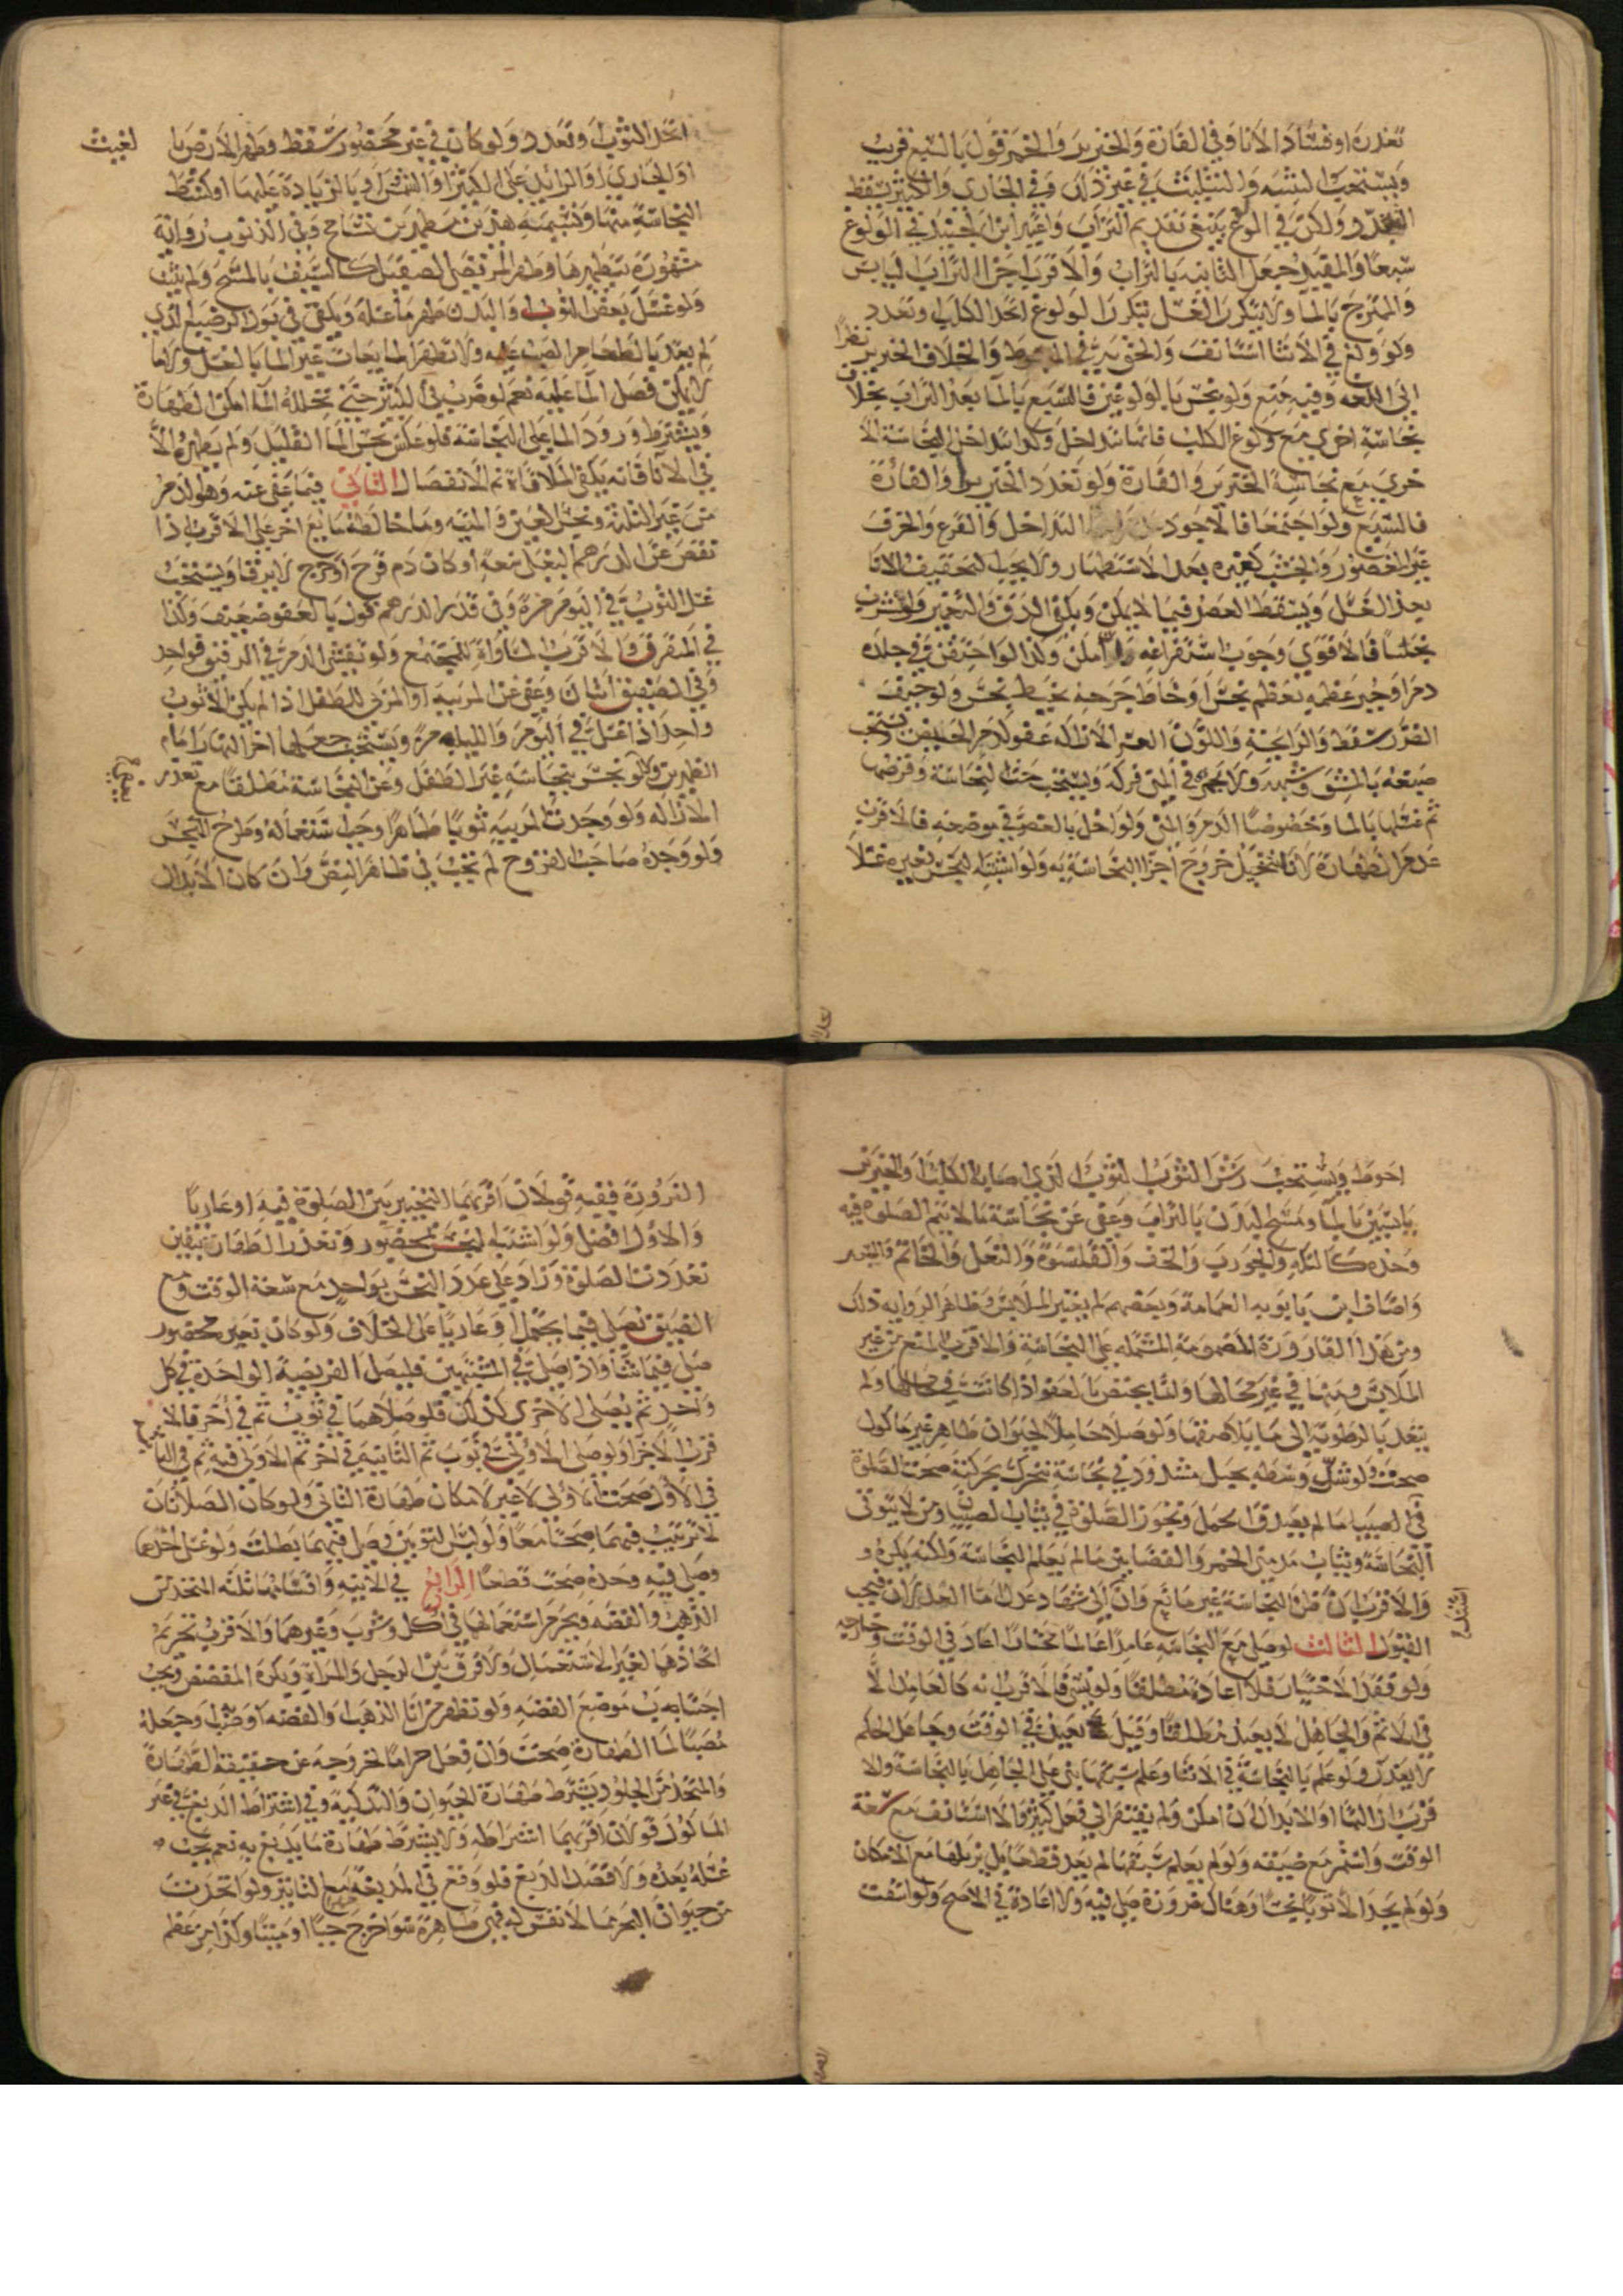 تعذره او فساد الانا وفي الفارة والخنزير والخمر قول بالسبع قريب
ويستحب لنفسه والتثليث في غير ذلك وفي الجاري والكثير يسقط
التعدد ولكن في الولوغ ينبغي تقديم التراب واعتبر ابن الجنيد في الولوغ
سبعا والمفيد جعل الثانية بالتراب والاقرب اجزاء التراب اليابس
والممتزج بالما ولا يتكرر الغسل بتكرر الولوغ اتحد الكلب او تعدد
ولو ولغ في الاثنا استانف والحق به في المبسوط والخلاف الخنزير نظرا
الى اللغة وفيه منع ولو نجس بالولوغ غيره فالسبع بالما بعد التراب بخلاف
نجاسة اخرى مع ولوغ الكلب فانها تداخل وكذا تداخل النجاسة الا
خرى مع نجاسة الخنزير والفارة ولو تعدد الخنزير او الفارة
فالسبع ولو اجتمعا فالاجود التداخل والقرع والخزف
غير المغضور والخشب كغيره بعد الاستظهار ولا يجب تجفيف الانا
بعد الغسل ويسقط العصر فيما لا يمكن ويكفي الدق والتغمير ولو شرب
نجسا فالاقوى وجوب استفراغه ان امكن وكذا لو احتقن في جلده
دم او جبر عظمه بعظم نجس او خاط جرحه بخيط نجس ولو خيف
الضرر سقط والرايحة واللون العسر الازالة عفو كدم الحيض ويستحب
صبغه بالمشق وشبهه ولا يجزي في المني فركه ويستحب حت النجاسة وقرصها
ثم غسلها بالما وخصوصا الدم والمني ولو اخل بالعصر في موضعه فالاقرب
عدم الطهارة لانا نتخيل خروج اجزا النجاسة به ولو اشتبه النجس بغيره غسلا
اتحد الثوب او تعدد ولو كان في غير محصور سقط وتطهر الارض بما الغيث
او الجاري او الزايد على الكثير او الشمس او بالزيادة عليها او كشط
النجاسة منها وتنشيفه
مشهورة بتطهيرها وطهر المرتضى الصقيل كالسيف بالمسح ولم يثبت
ولو غسل بعض الثوب او البدن طهر ما غسله ويكفي في بول الرضيع الذي
لم يغتذ بالطعام الصب عليه ولا تطهر المايعات غير الما بالغسل ولا ما
لا يمكن فصل الما عليه نعم لو ضرب في الكثير حتى تخلله الما امكن الطهارة
ويشترط ورود الما على النجاسة فلو عكس نجس الما القليل ولم يطهره الا
في الانا فانه يكفي الملاقاة ثم الانفصال الثاني فيما عفي عنه وهو الدم
من غير الثلثة ونجس العين والميتة وما خالطه مايع اخر على الاقرب اذا
نقص عن الدرهم البغلي سعة او كان دم قرح او جرح لا يرقا ويستحب
غسل الثوب في اليوم مرة وفي قدر الدرهم قول بالعفو ضعيف وكذا
في المتفرق والاقرب المساواة للمجتمع ولو تفشى الدم في الرقيق فواحد
وفي الصفيق اثنان وعفي عن المربية او المربي للطفل اذا لم يكن الا ثوب
واحد اذا غسل في اليوم والليلة مرة ويستحب جعلها اخر النهار امام
الظهرين ولو نجس بنجاسة غير الطفل وعن النجاسة مطلقا مع تعذر
الازالة ولو وجدت المربية ثوبا طاهرا وجب استعماله وطرح النجس
ولو وجده صاحب القروح لم يجب في ظاهر النص وان كان الابدال
احوط ويستحب رش الثوب لثوب لذي اصابه الكلب والخنزير
يابسين بالما ومسح البدن بالتراب وعفي عن نجاسة ما لا تتم الصلوة فيه
وحده كالتكة والجورب والخف والقلنسوة والنعل والخاتم والسير
واضاف ابن بابويه العمامة وبعضهم لم يعتبر الملابس وظاهر الرواية ذلك
ومن هذا القارورة المضمومة المشتملة على النجاسة والاقرب المنع من غير
الملابس ومنها في غير محالها وانما يختص بالعفو اذا كانت في محالها ولم
يتعد بالرطوبة الى ما يلاصقها ولو صلا حاملا لحيوان طاهر غير ماكول
صحت ولو شد وسطه بحبل مشدود في نجاسة تتحرك بحركته صحت الصلوة
في الصبيا ما لم يصدق الحمل وتجوز الصلوة في ثياب الصبيان ومن لا يتوقى
النجاسة وثياب مدمني الخمر والقصابين ما لم يعلم النجاسة ولكنه يكره
والاقرب ان ظن النجاسة غير مانع وان الى شهادة عدل اما العدلان فيجب
القبول الثالث لو صلى مع النجاسة عامدا عالما مختارا اعاد في الوقت وخارجه
ولو فقد الاختيار فلا اعادة مطلقا ولو نسي فالاقرب انه كالعامد الا
في الاثم والجاهل لا يعيد مطلقا وقيل يعيد في الوقت وجاهل الحكم
لا يعذر ولو علم بالنجاسة في الاثنا وعلم سبقها بنى على الجاهل بالنجاسة والا
قرب ازالتها او الابدال ان امكن ولم يفتقر الى فعل كثير والا استانف مع سعة
الوقت واستمر مع ضيقه ولو لم يعلم سبقها لم يعد قطعا بل يزيلها مع الامكان
ولو لم يجد الا ثوبا نجسا وهناك ضرورة صلى فيه ولا اعادة في الاصح ولو انتفت
الضرورة ففيه قولان اقربهما التخيير بين الصلوة فيه او عاريا
والاول افضل ولو اشتبه نجس بمحصور وتعذر الطهارة بيقين
تعددت الصلوة وزاد على عدد النجس بواحد مع سعة الوقت ومع
الضيق يصلي فيما يحتمل او عاريا على الخلاف ولو كان بغير محصور
صلى فيما شا واذا صلى في المشتبهين فليصل الفريضة الواحدة في كل
واحد ثم يصلي الاخرى كذلك فلو صلاهما في ثوب ثم في اخر فالا
قرب الاجزا ولو صلى الاولى في ثوب ثم الثانية في اخر ثم الاولى فيه ثم الثانية
في الاول صحت الاولى لا غير لامكان طهارة الثاني ولو كان الصلاتان
لا ترتيب فيهما صحتا معا ولو لبس الثوبين وصلى فيهما بطلت ولو غسل احدهما
وصلى فيه وحده صحت قطعا الرابع في الانية واقسامها ثلثة المتخذ من
الذهب والفضة ويحرم استعمالها في اكل وشرب وغيرهما والاقرب تحريم
اتخاذها لغير الاستعمال ولا فرق بين الرجل والمراة ويكره المفضض ويجب
اجتناب موضع الفضة ولو تطهر من انا الذهب والفضة او جعله
مصبا لما الطهارة صحت وان فعل حراما لخروجه عن حقيقة الطهارة
والمتخذ من الجلود يشترط طهارة الحيوان والتذكية وفي اشتراط الدبغ في غير
الماكول قولان اقربهما اشتراطه ولا يشترط طهارة ما يدبغ به نعم يجب
غسله بعده ولا قصد الدبغ فلو وقع في المدبغة ولو اتخذت
من حيوان البحر مما لا نفس له فهي طاهرة سوا خرج حيا او ميتا وكذا من عظم